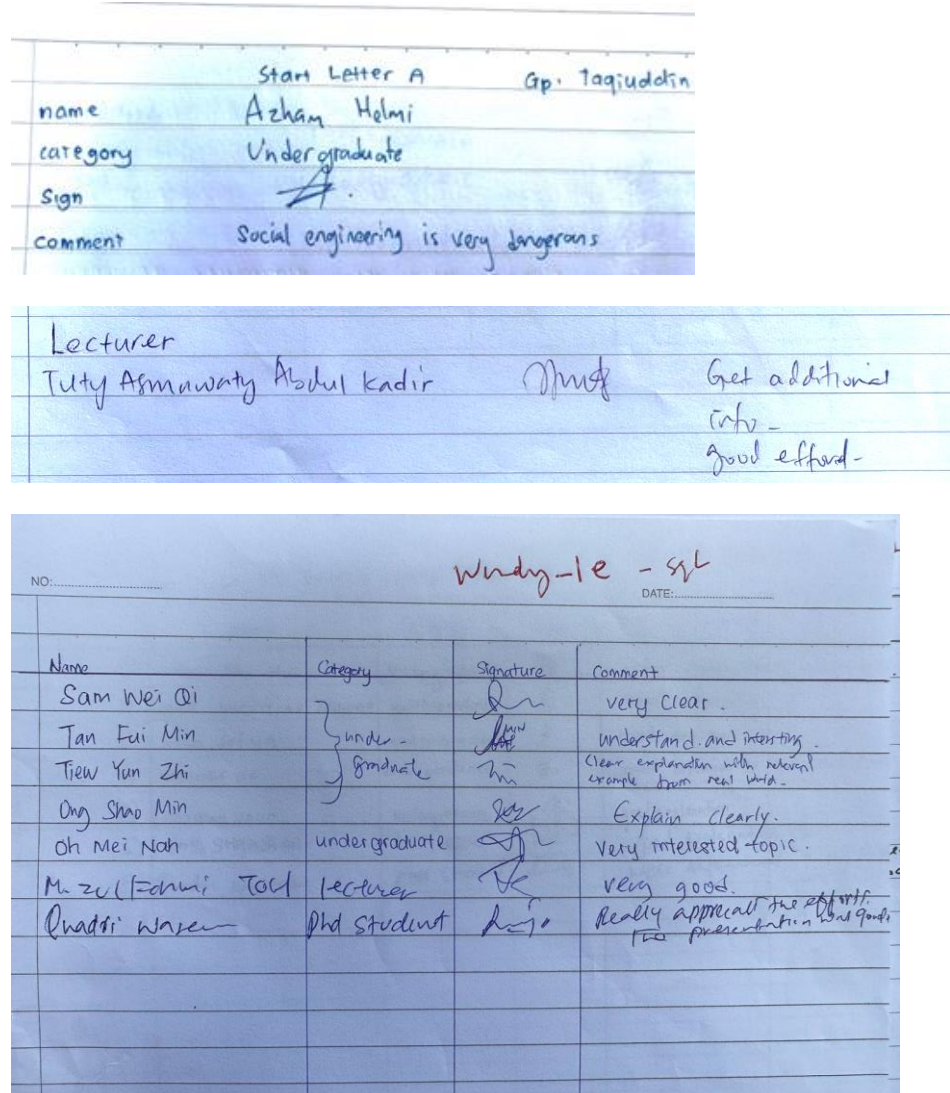 Start Letter A Gp. Taqiuddin
name Azham Helmi
category Undergraduate
Sign
comment Social engineering is very dangerous
Lecturer
Tuty Asmawaty Abdul Kadir Get additional
info -
good efford -
le - sql
NO: DATE:
Name Category Signature Comment
Sam Wei Qi very clear .
Tan Fui Min under - MIN understand and intersting .
Tiew Yun Zhi graduate Clear explanation with relevant
example from real world.
Ong Shao Min Explain Clearly.
Oh Mei Nah undergraduate very interested topic .
M. Zul Fahmi lecturer very good.
Quadri Phd Student Really the efforts.
presentation was good.